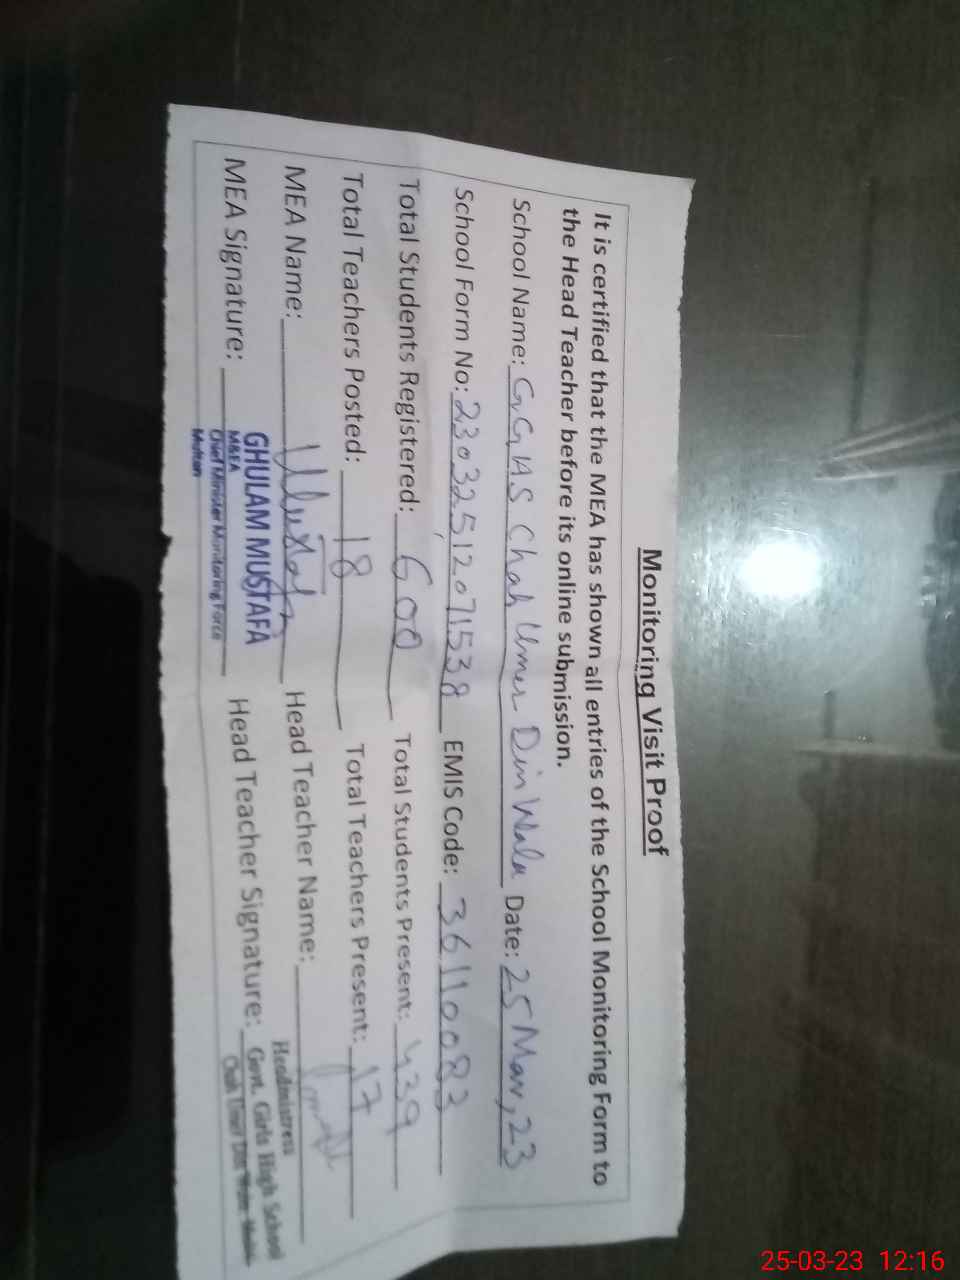 Monitoring Visit Proof
It is certified that the MEA has shown all entries of the School Monitoring Form to
the Head Teacher before its online submission.
School Name: GGHS Chah Umer Din Wala Date: 25 Mar, 23
School Form No: 23032512071538 EMIS Code: 36110083
Total Students Registered: 600 Total Students Present: 439
Total Teachers Posted: 18 Total Teachers Present: 17
MEA Name: Head Teacher Name:
MEA Signature: Head Teacher Signature:
GHULAM MUSTAFA
M&EA
Chief Minister Monitoring Force
Multan
Headmistress
Govt. Girls High School
Chah Umer Din Wala
25-03-23 12:16